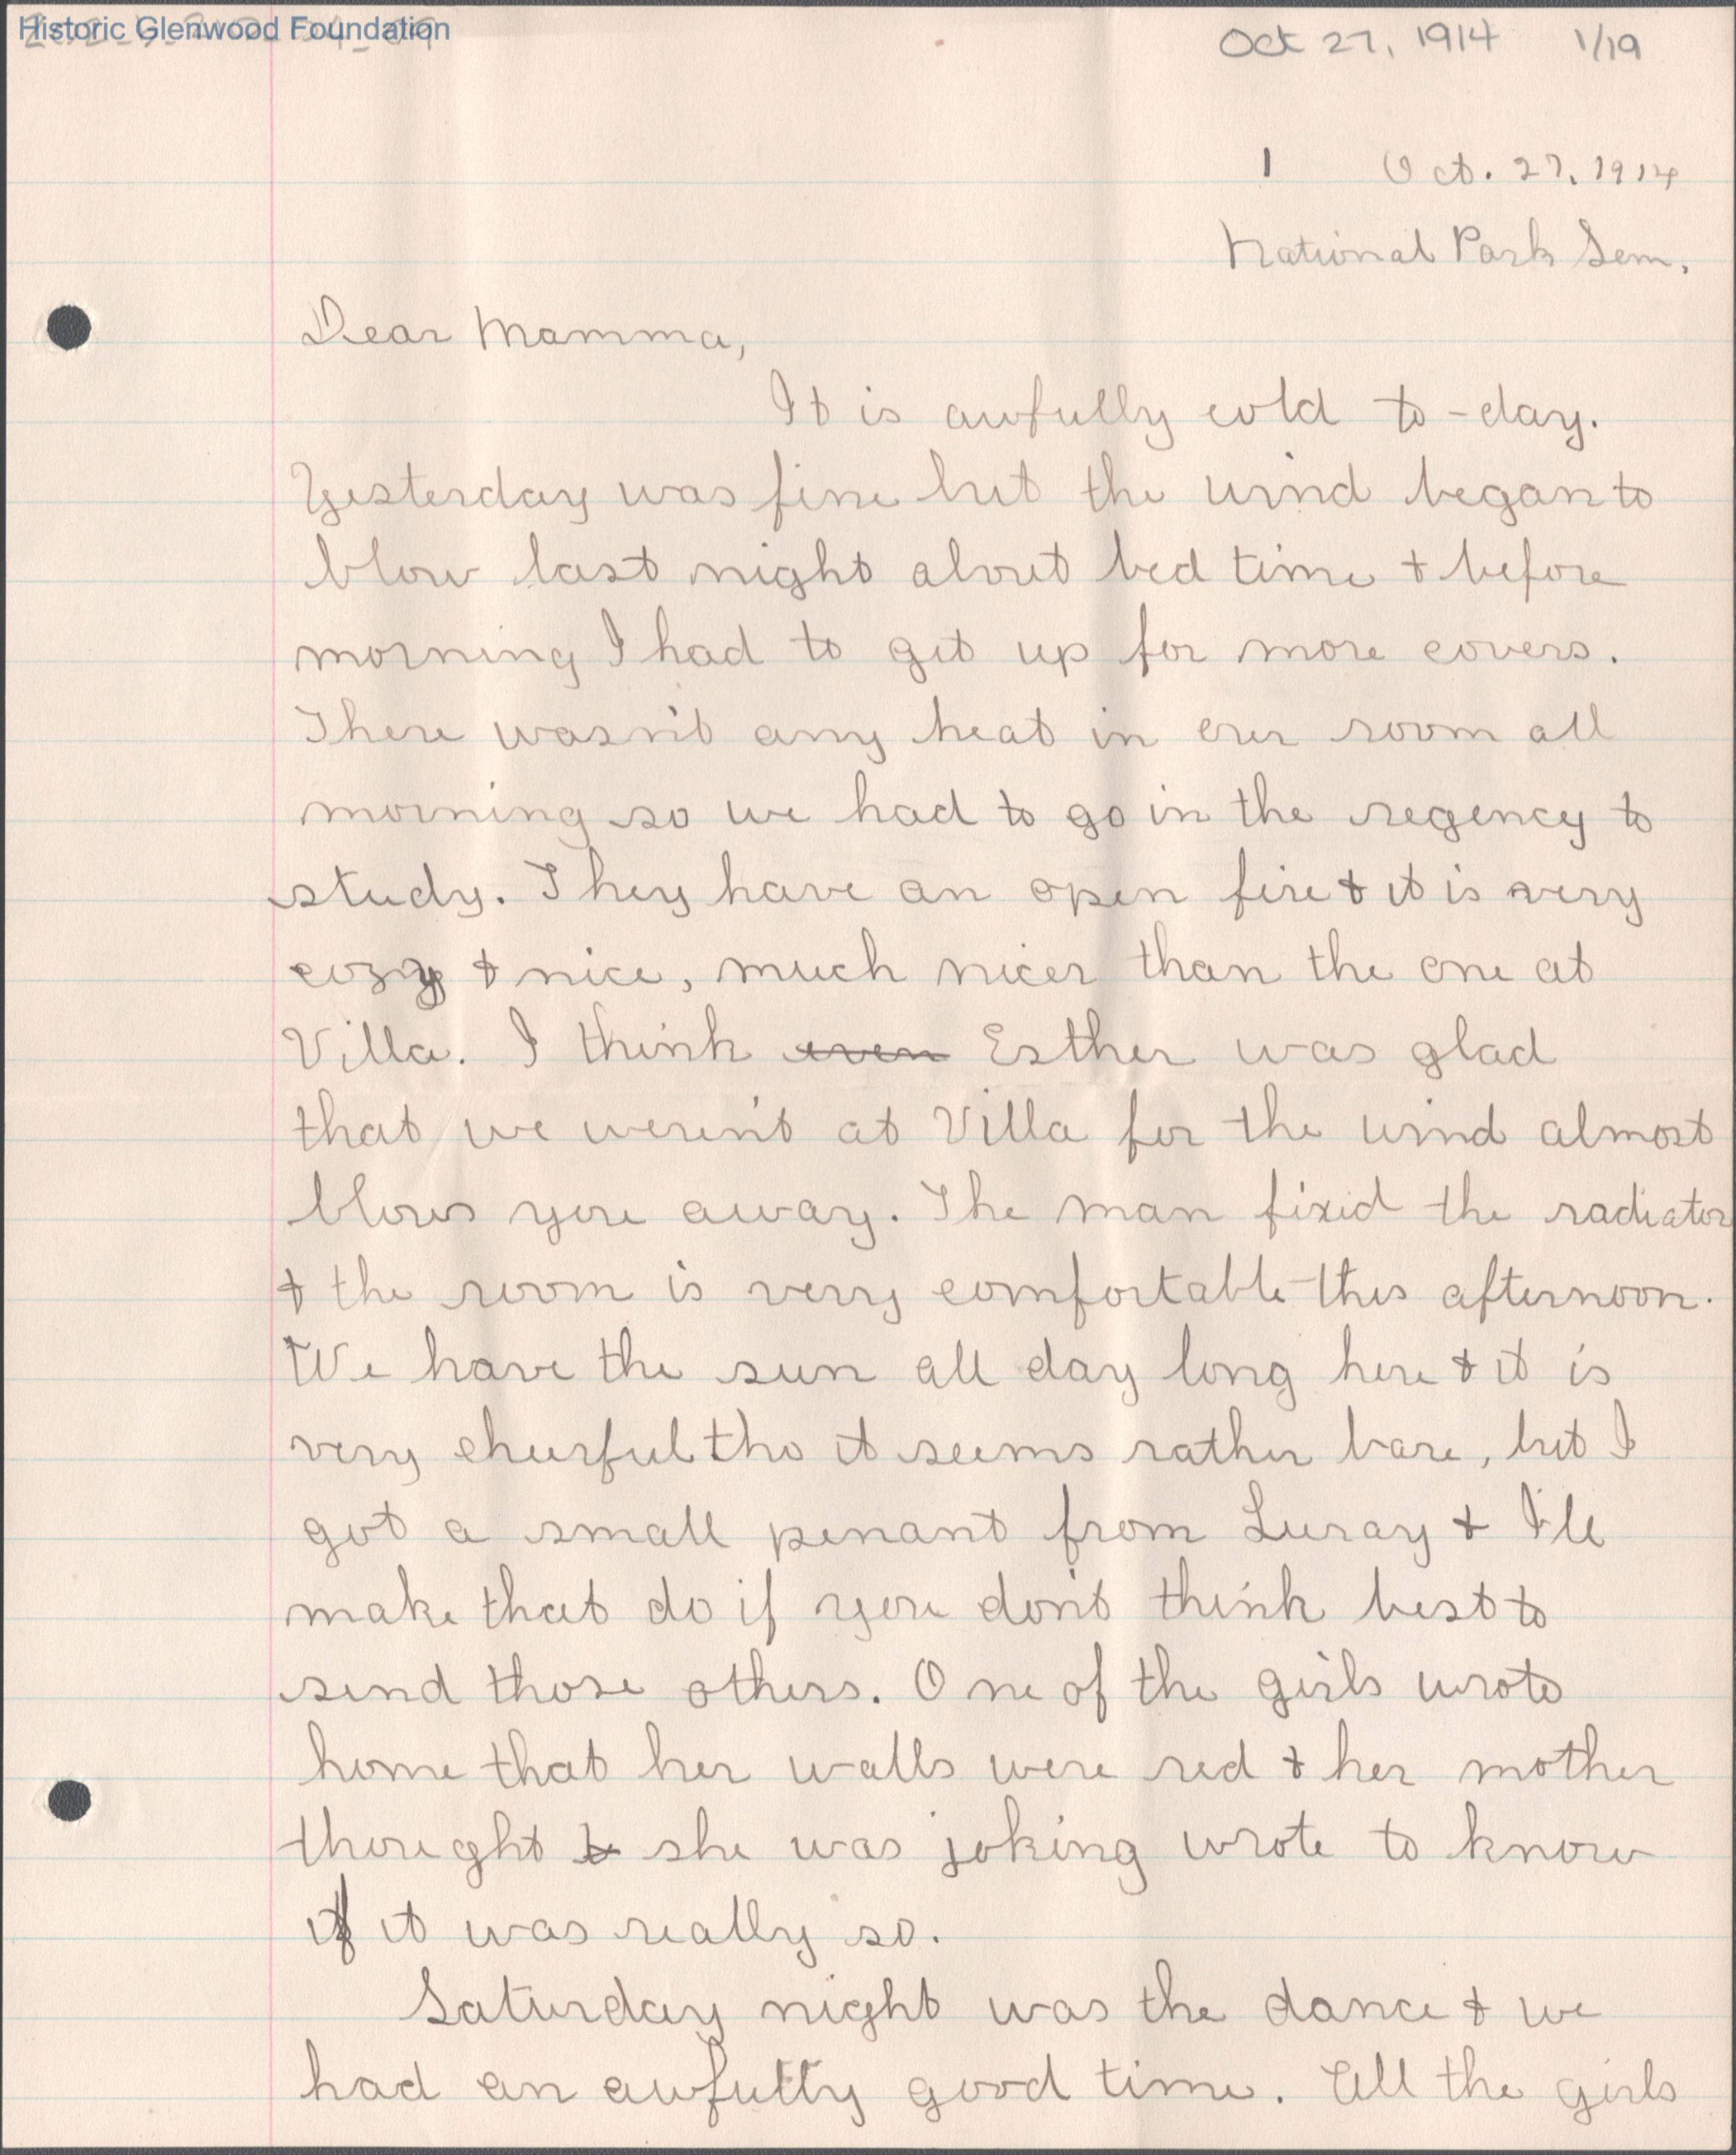 Historic Glenwood Foundation
Oct 27, 1914 1/19
1 Oct. 27, 1914
National Park Sem.
Dear Mamma,
It is awfully cold to-day.
Yesterday was fine but the wind began to
blow last night about bed time + before
morning I had to get up for more covers.
There wasn't any heat in our room all
morning so we had to go in the regency to
study. They have an open fire + it is very
cozy + nice, much nicer than the one at
Villa. I think even Esther was glad
that we weren't at Villa for the wind almost
blows you away. The man fixed the radiator
+ the room is very comfortable this afternoon.
We have the sun all day long here + it is
very cheerful tho it seems rather bare, but I
got a small penant from Luray + I'll
make that do if you don't think best to
send those others. One of the girls wrote
home that her walls were red + her mother
thought she was joking wrote to know
if it was really so.
Saturday night was the dance + we
had an awfully good time. All the girls